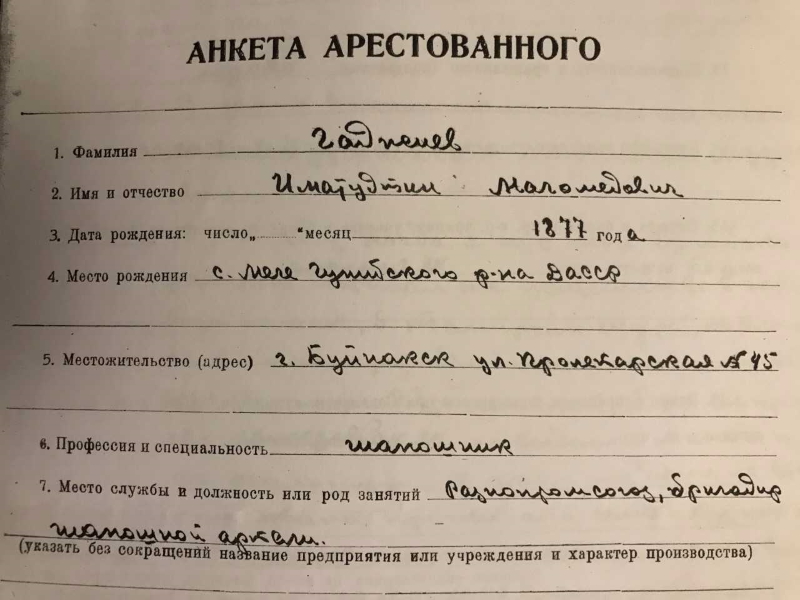 АНКЕТА АРЕСТОВАННОГО
1. Фамилия
2. Имя и отчество Магомедович
3. Дата рождения: число „ “ месяц 1877 года
4. Место рождения с. Меге Гунибского р-на ДАССР
5. Местожительство (адрес) г. Буйнакск ул. Пролетарская № 45
6. Профессия и специальность шапошник
7. Место службы и должность или род занятий Разнопромсоюз, бригадир
шапошной артели.
(указать без сокращений название предприятия или учреждения и характер производства)